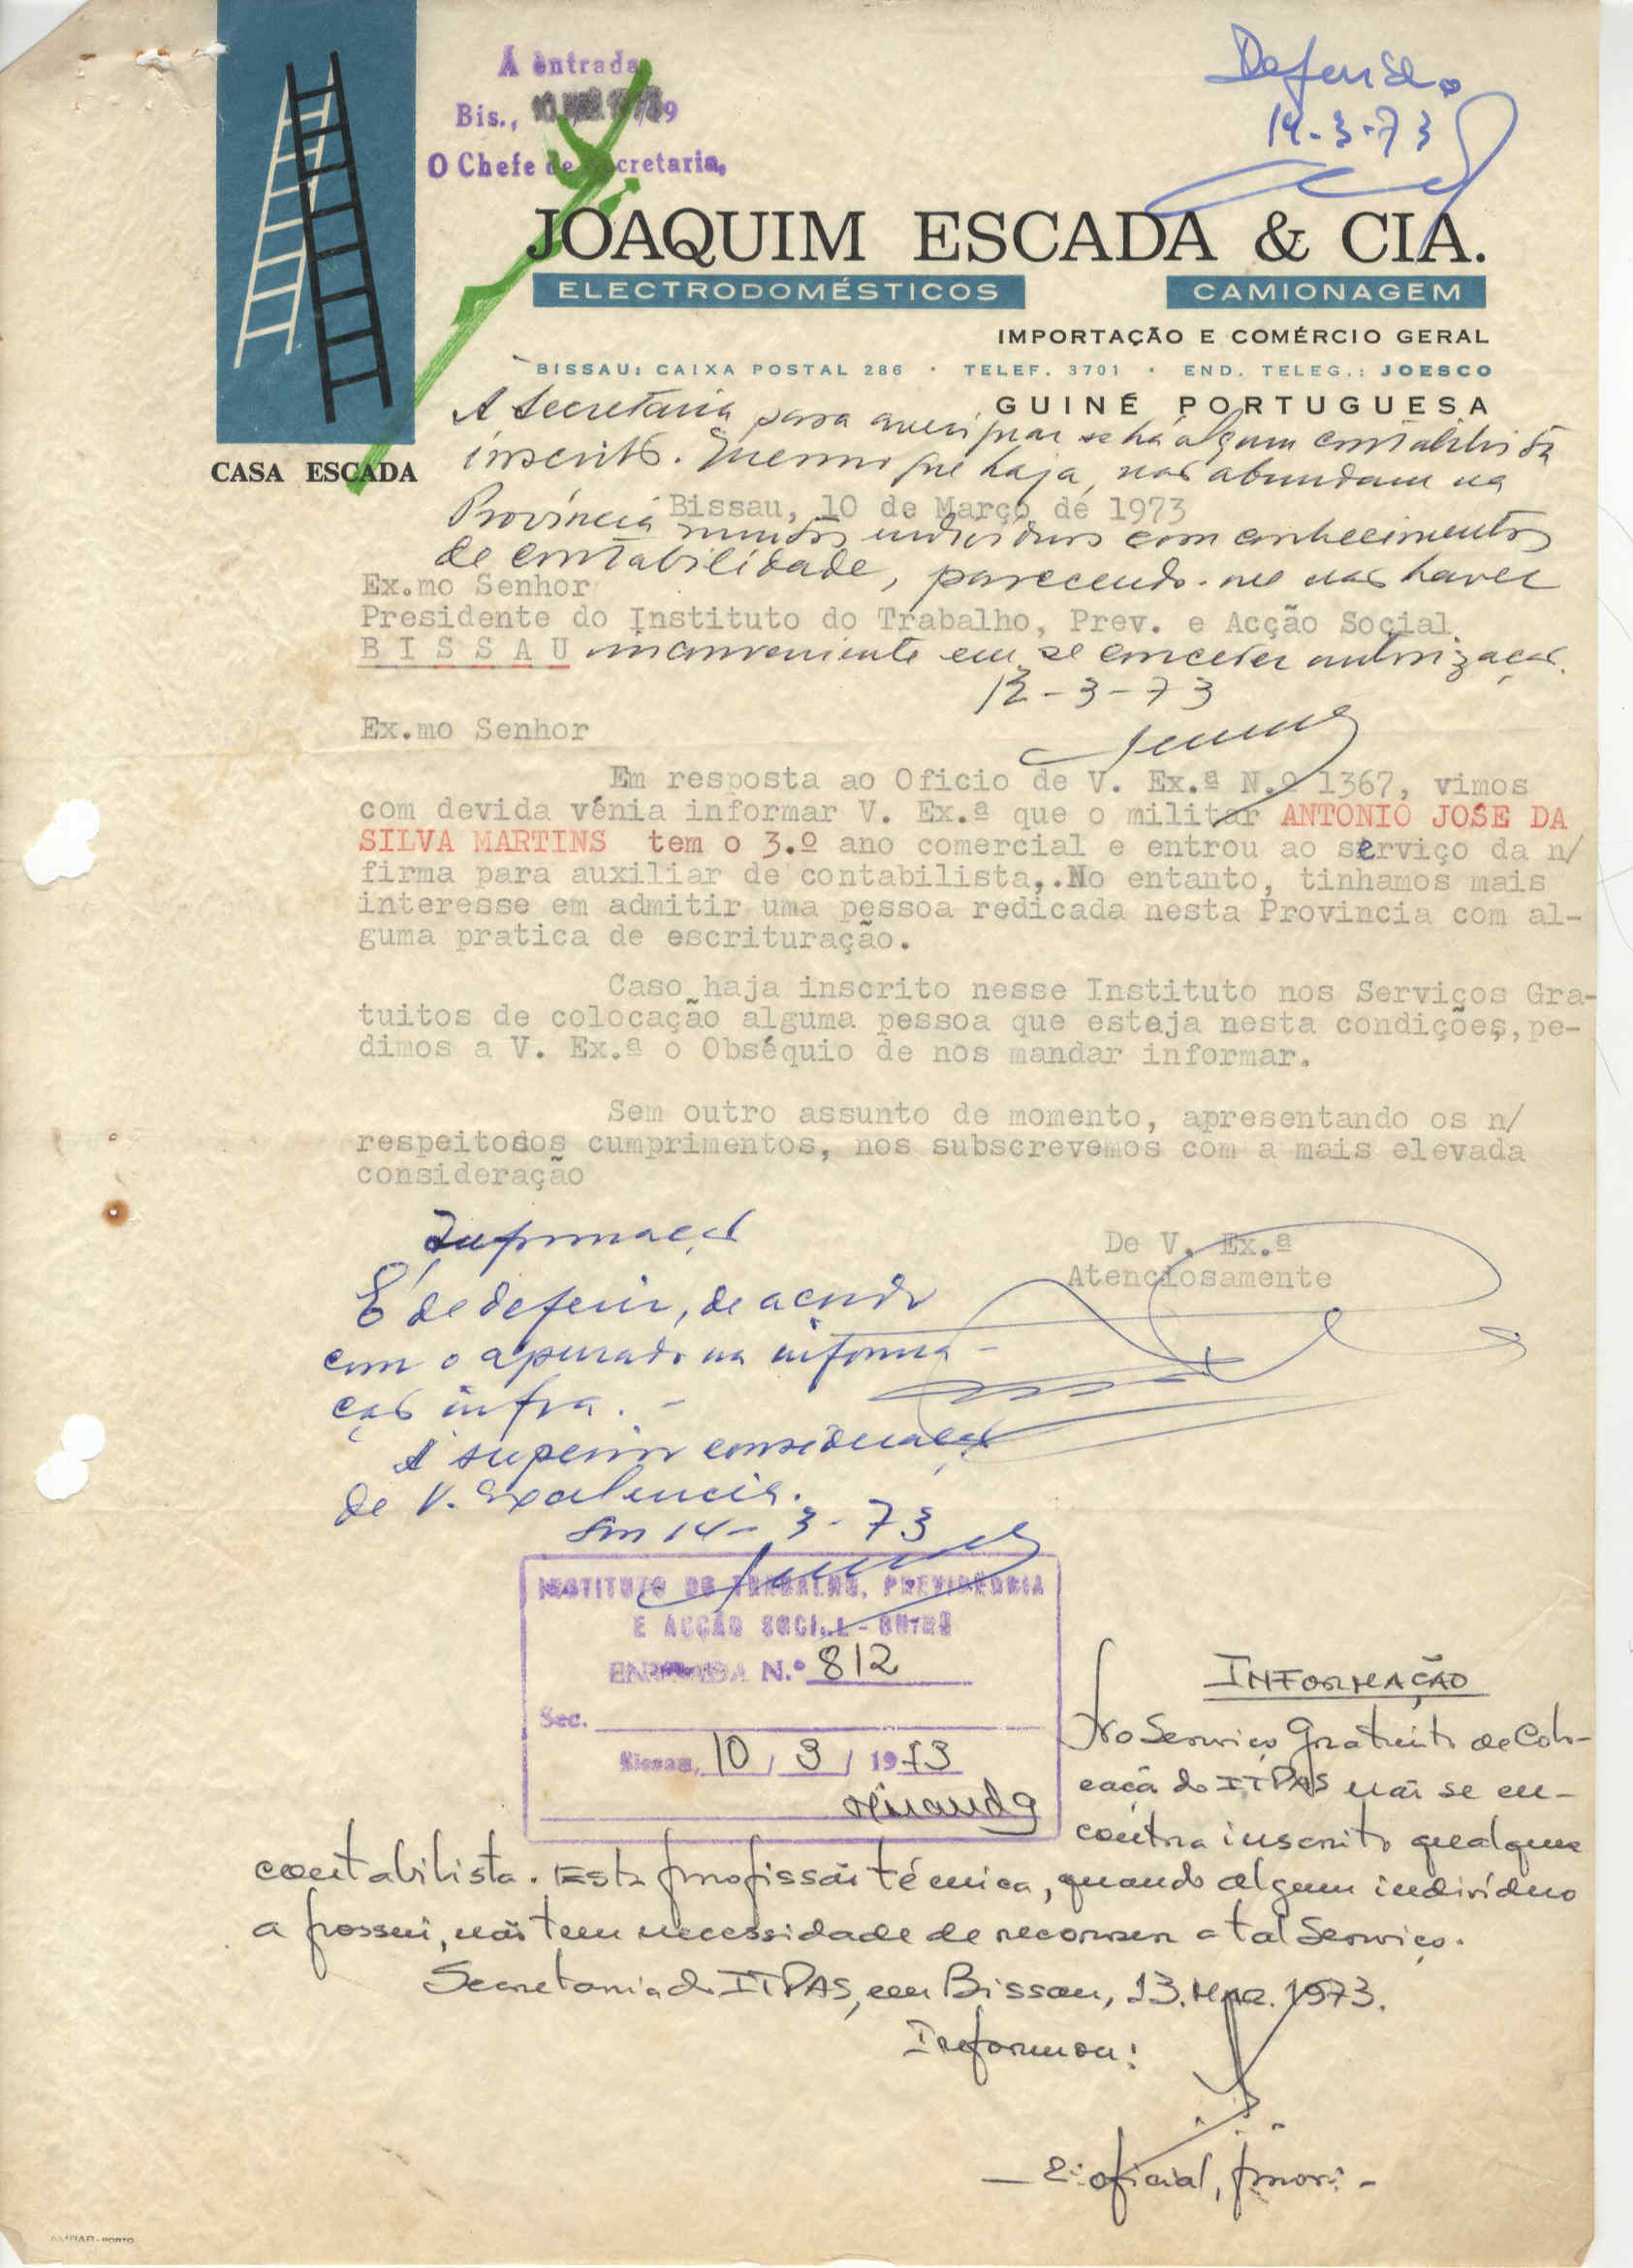 Á entrada
Bis.,
O Chefe de Secretaria,
Deferido
14-3-73
JOAQUIM ESCADA & CIA.
ELECTRODOMÉSTICOS CAMIONAGEM
IMPORTAÇÃO E COMÉRCIO GERAL
BISSAU: CAIXA POSTAL 286 • TELEF. 3701 • END. TELEG.: JOESCO
GUINÉ PORTUGUESA
CASA ESCADA
A Secretaria para averiguar se há algum contabilista
inscrito. Mesmo que haja, não abundam na
Bissau, 10 de Março de 1973
Província muitos indivíduos com conhecimentos
de contabilidade, parecendo-me não haver
Ex.mo Senhor
Presidente do Instituto do Trabalho, Prev. e Acção Social
B I S S A U
inconveniente em se conceder autorização.
12-3-73
Ex.mo Senhor
Em resposta ao Oficio de V. Ex.ª N.º 1367, vimos
com devida vénia informar V. Ex.ª que o militar ANTONIO JOSE DA
SILVA MARTINS tem o 3.º ano comercial e entrou ao serviço da n/
firma para auxiliar de contabilista,.No entanto, tinhamos mais
interesse em admitir uma pessoa redicada nesta Provincia com al-
guma pratica de escrituração.
Caso haja inscrito nesse Instituto nos Serviços Gra-
tuitos de colocação alguma pessoa que esteja nesta condições,pe-
dimos a V. Ex.ª o Obséquio de nos mandar informar.
Sem outro assunto de momento, apresentando os n/
respeitosos cumprimentos, nos subscrevemos com a mais elevada
consideração
De V. Ex.ª
Atenciosamente
Informação
É de deferir, de acordo
com o apurado na informa-
ção infra.-
À superior consideração
de V. Excelência.
Em 14-3-73
INSTITUTO DO TRABALHO, PREVIDÊNCIA
E ACÇÃO SOCIAL - GUINÉ
ENTRADA N.º 812
Sec.
Bissau, 10 / 3 / 1973
Miranda
INFORMAÇÃO
No Serviço Gratuito de Colo-
cação do ITPAS não se en-
contra inscrito qualquer
contabilista. Esta profissão técnica, quando algum indivíduo
a possui, não tem necessidade de recorrer a tal Serviço.
Secretaria do ITPAS, em Bissau, 13.Mar.1973.
Informou:
— 2º oficial, provº -
AMBAR-PORTO